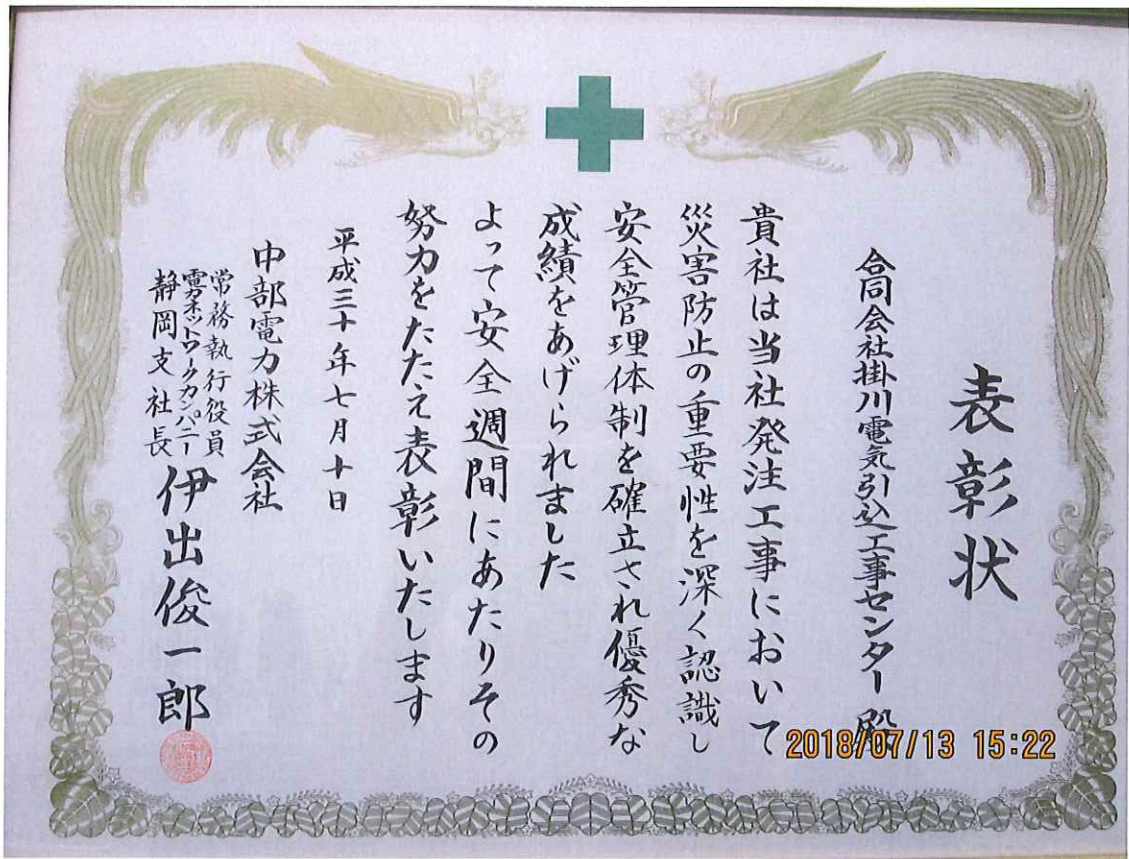 表彰状
合同会社掛川電気引込工事センター 殿
貴社は当社発注工事において
災害防止の重要性を深く認識し
安全管理体制を確立され優秀な
成績をあげられました
よって安全週間にあたりその
努力をたたえ表彰いたします
平成三十年七月十日
中部電力株式会社
常務執行役員
電力ネットワークカンパニー
静岡支社長
伊出俊一郎
2018/07/13 15:22